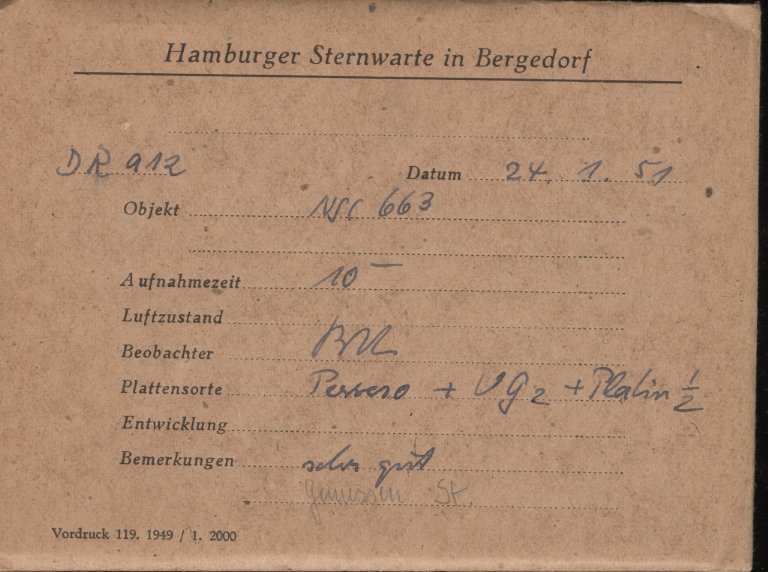 Hamburger Sternwarte in Bergedorf
DR 912 Datum 24. 1. 51
Objekt NGC 663
Aufnahmezeit 10 —
Luftzustand
Beobachter
Plattensorte Persenso + UG2 + Platin 1/2
Entwicklung
Bemerkungen sehr gut
gemessen St.
Vordruck 119. 1949 / 1. 2000